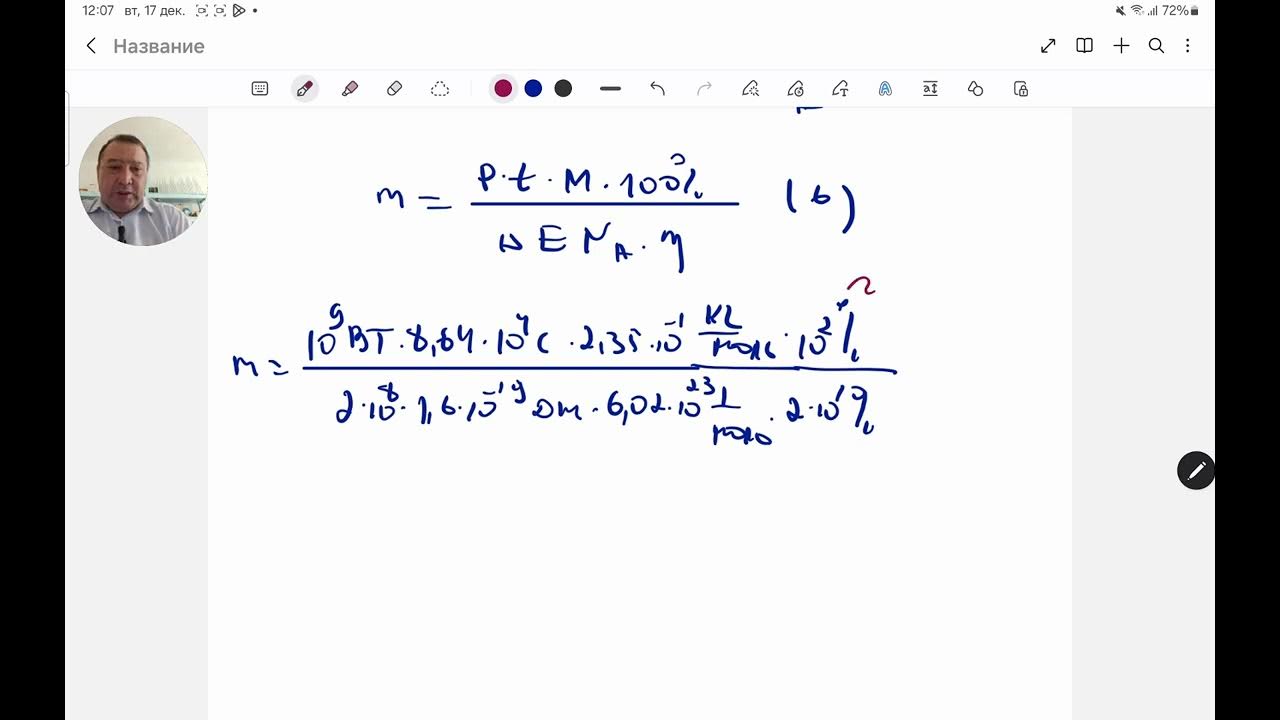 12:07 вт, 17 дек. 72%
Название
m = P·t·M·100% / ΔE N_A·η (6)
m = 10^9 Вт·8,64·10^4 с·2,35·10^-1 кг/моль·10^2 % / 2·10^8·1,6·10^-19 Дж·6,02·10^23 1/моль·2·10^1 %